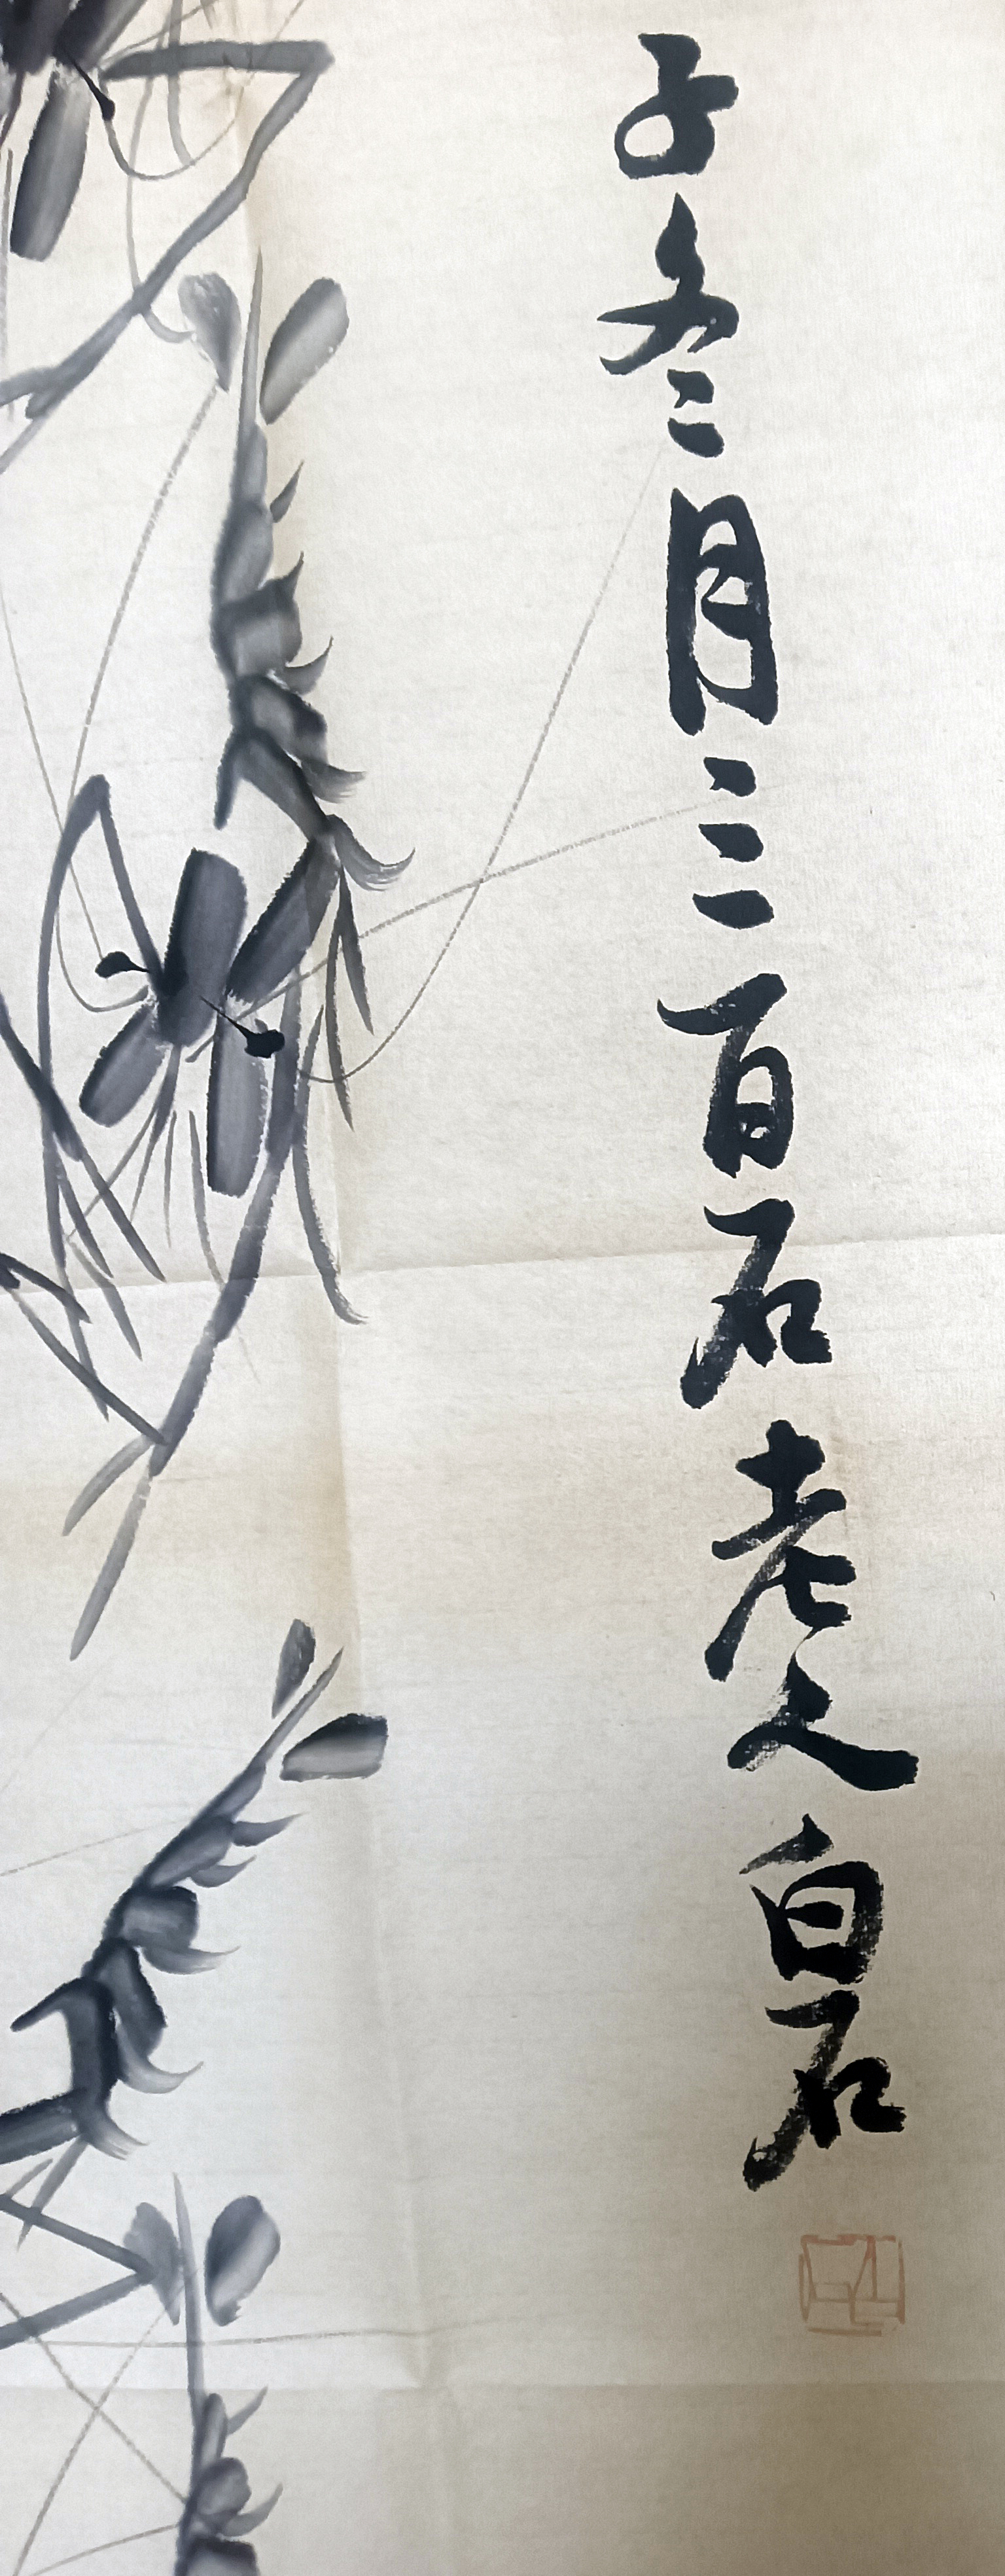 子冬二月三百石老人白石